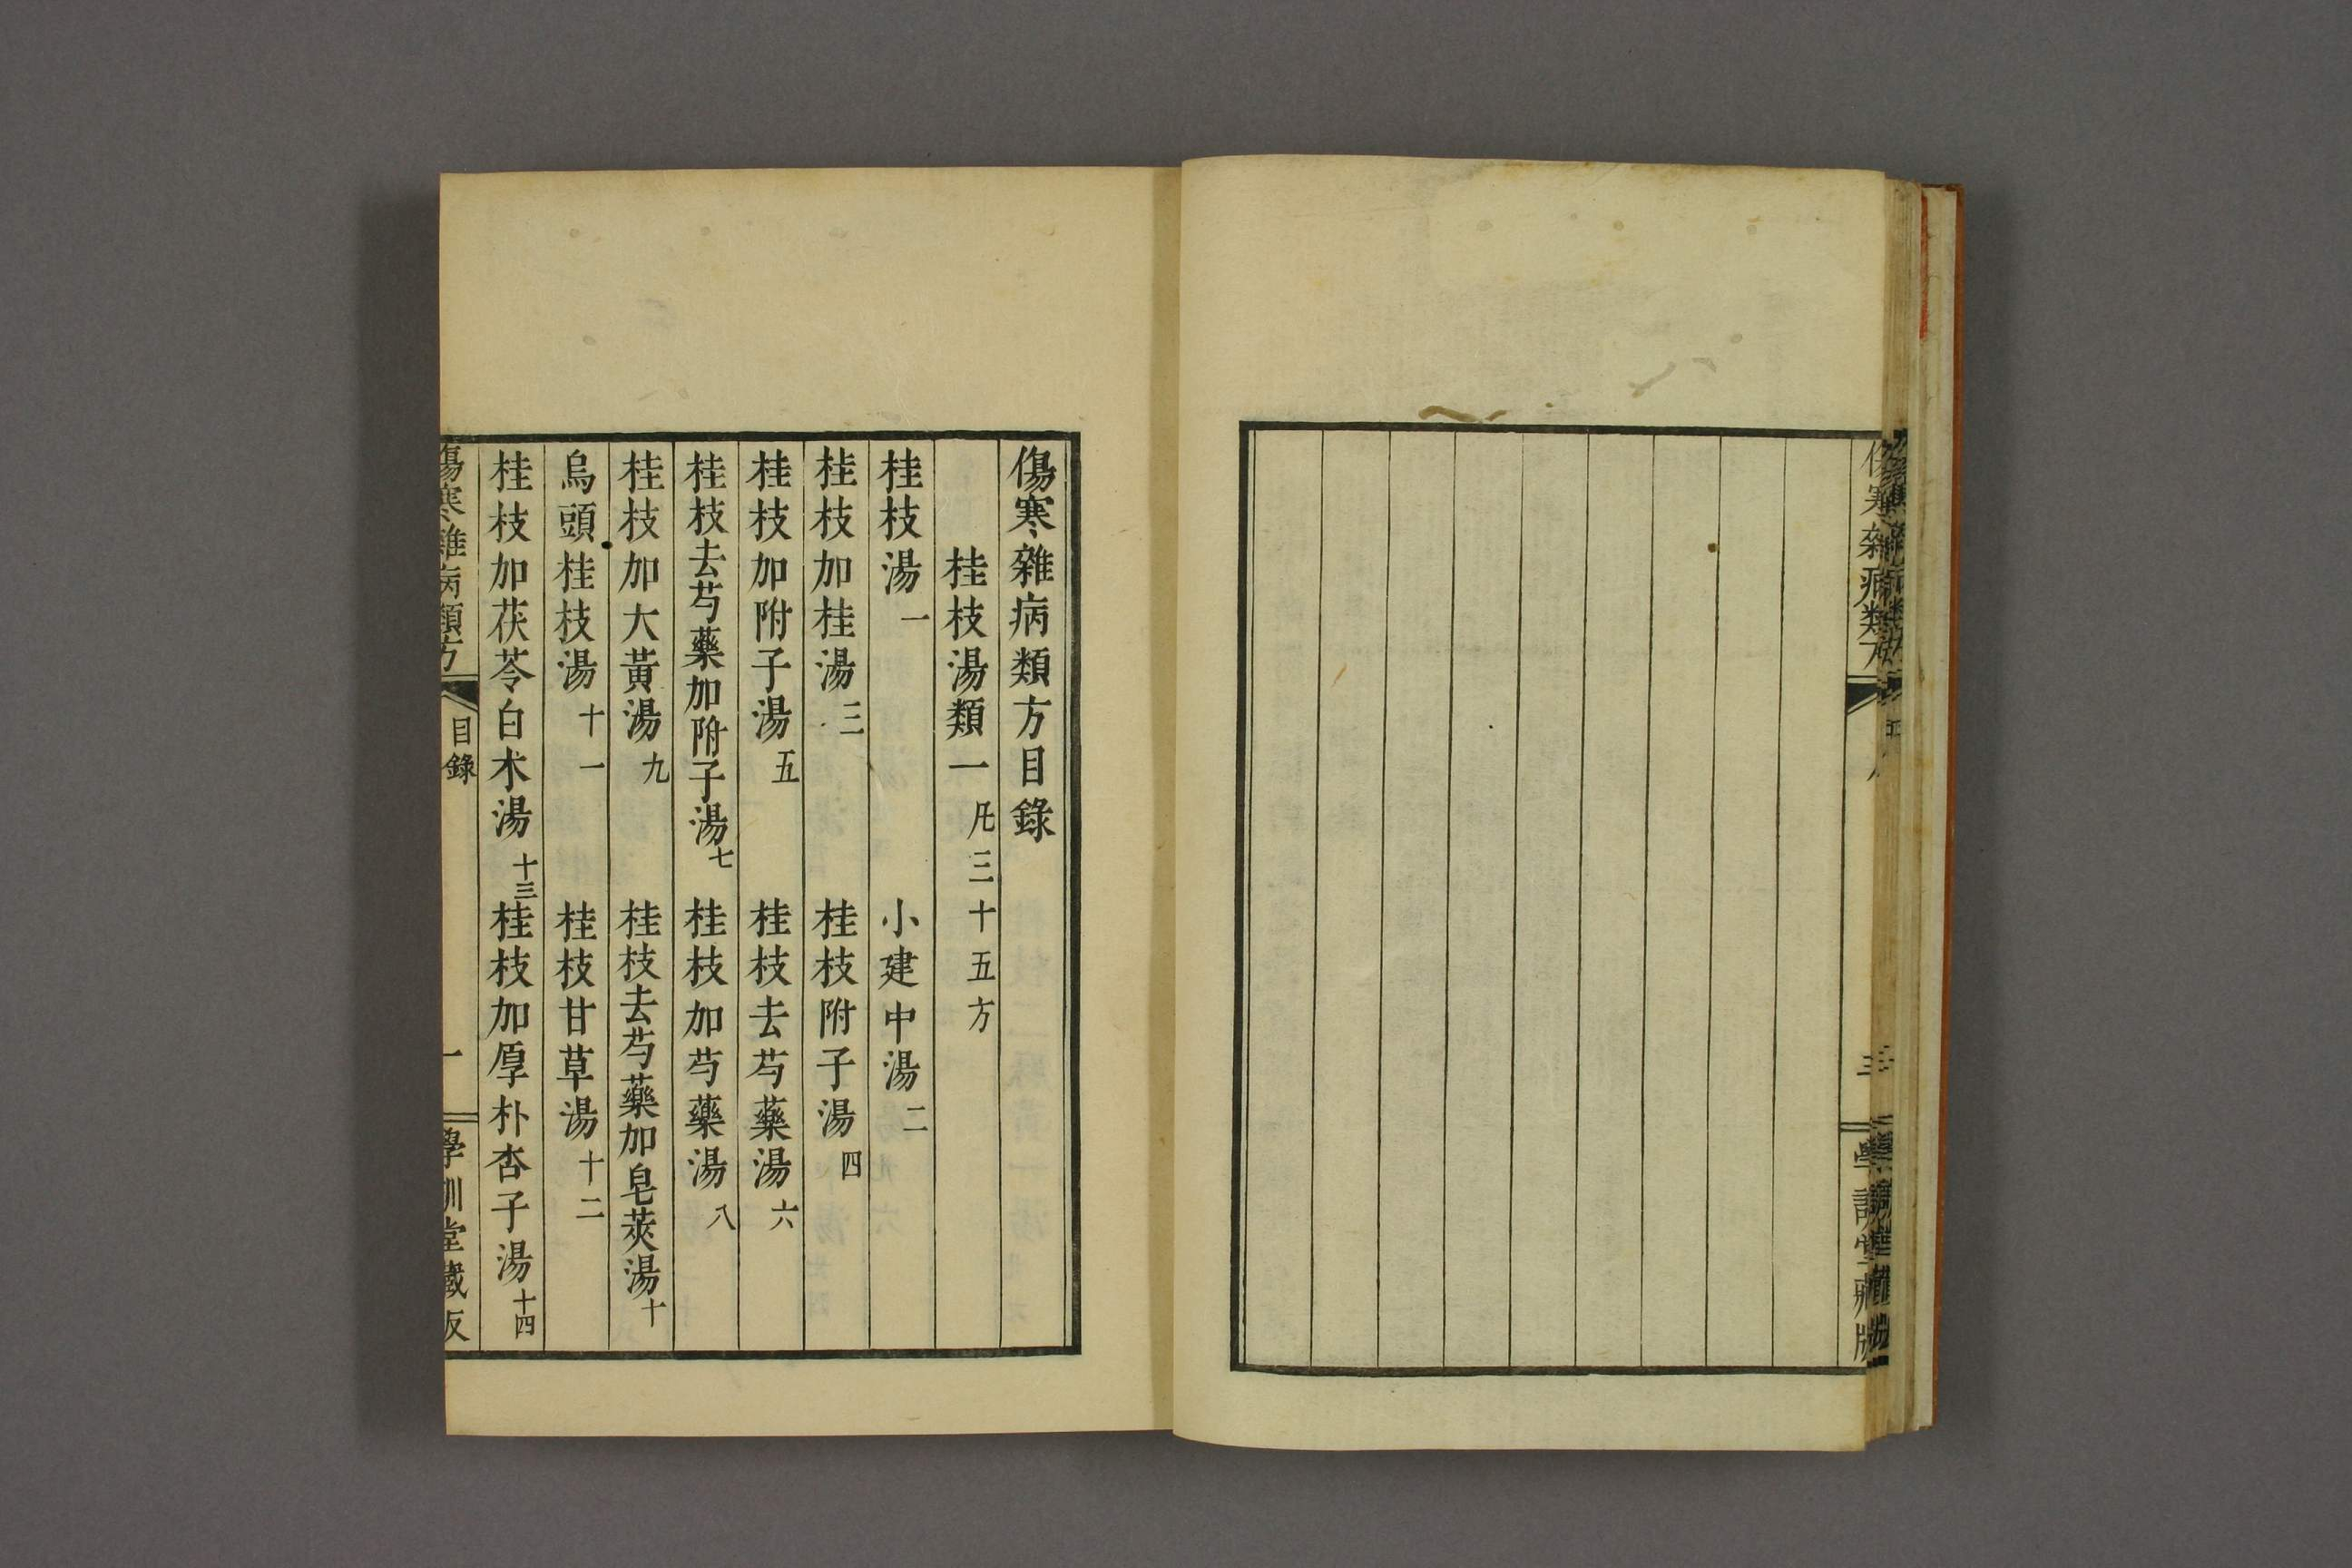 傷寒雜病類方
三
學訓堂藏版
傷寒雜病類方目錄
桂枝湯類一 凡三十五方
桂枝湯一 小建中湯二
桂枝加桂湯三 桂枝附子湯四
桂枝加附子湯五 桂枝去芍藥湯六
桂枝去芍藥加附子湯七 桂枝加芍藥湯八
桂枝加大黃湯九 桂枝去芍藥加皂莢湯十
烏頭桂枝湯十一 桂枝甘草湯十二
桂枝加茯苓白朮湯十三 桂枝加厚朴杏子湯十四
傷寒雜病類方 目錄 一 學訓堂藏版